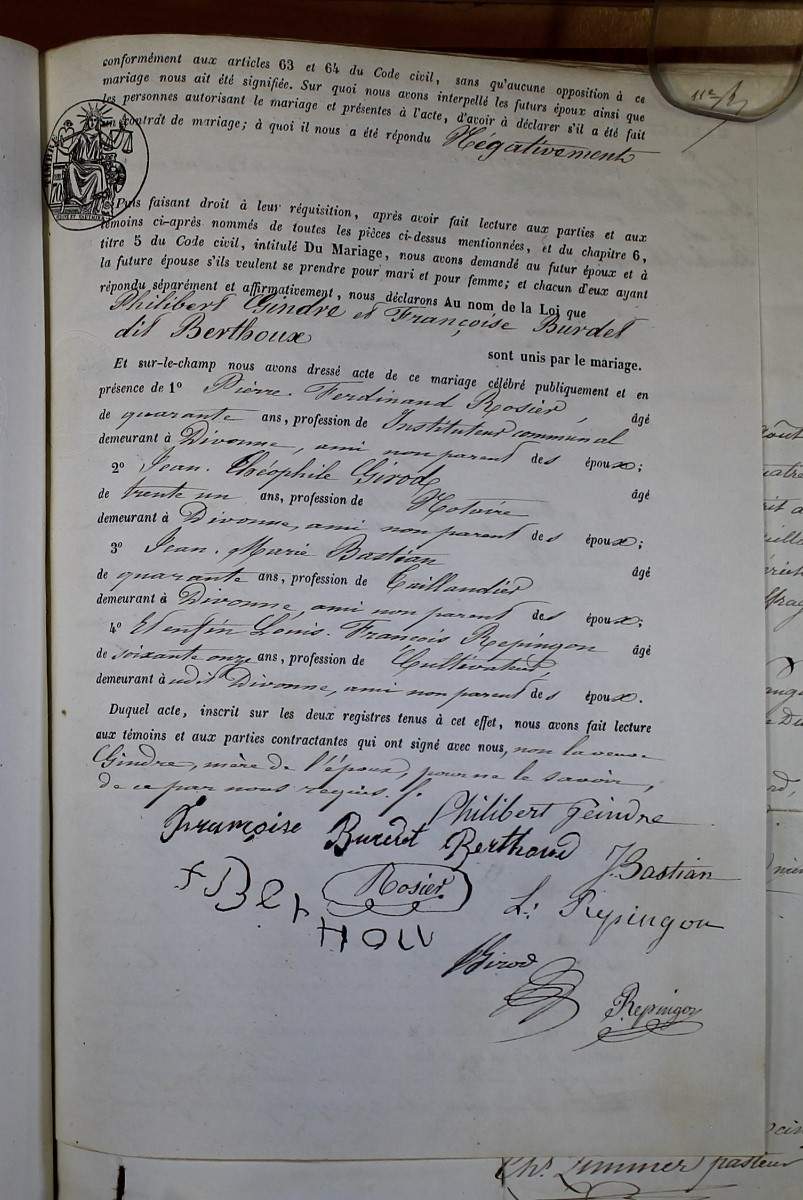 conformément aux articles 63 et 64 du Code civil, sans qu'aucune opposition à ce
mariage nous ait été signifiée. Sur quoi nous avons interpellé les futurs époux ainsi que
les personnes autorisant le mariage et présentes à l'acte, d'avoir à déclarer s'il a été fait
un contrat de mariage; à quoi il nous a été répondu Négativement
Puis faisant droit à leur réquisition, après avoir fait lecture aux parties et aux
témoins ci-après nommés de toutes les pièces ci-dessus mentionnées, et du chapitre 6,
titre 5 du Code civil, intitulé Du Mariage, nous avons demandé au futur époux et à
la future épouse s'ils veulent se prendre pour mari et pour femme; et chacun d'eux ayant
répondu séparément et affirmativement, nous déclarons Au nom de la Loi que
Philibert Gindre et Françoise Burdet
dit Berthoux
sont unis par le mariage.
Et sur-le-champ nous avons dressé acte de ce mariage célébré publiquement et en
présence de 1° Pierre. Ferdinand Rosier, âgé
de quarante ans, profession de Instituteur communal
demeurant à Divonne, ami non parent des époux;
2° Jean. Théophile Girod âgé
de trente un ans, profession de Notaire
demeurant à Divonne, ami non parent des époux;
3° Jean. Marie Bastian âgé
de quarante ans, profession de Taillandier
demeurant à Divonne, ami non parent des époux;
4° Et enfin Louis. François Repingon âgé
de soixante onze ans, profession de Cultivateur
demeurant à udit Divonne, ami non parent des époux.
Duquel acte, inscrit sur les deux registres tenus à cet effet, nous avons fait lecture
aux témoins et aux parties contractantes qui ont signé avec nous, non la veuve
Gindre, mère de l'époux, pour ne le savoir,
de ce par nous requis.
Philibert Geindre
Françoise Burdet Berthoud
J. Bastian
Rosier
L. Repingon
Ber
HOU
Girod
Repingon
Chs. pasteur